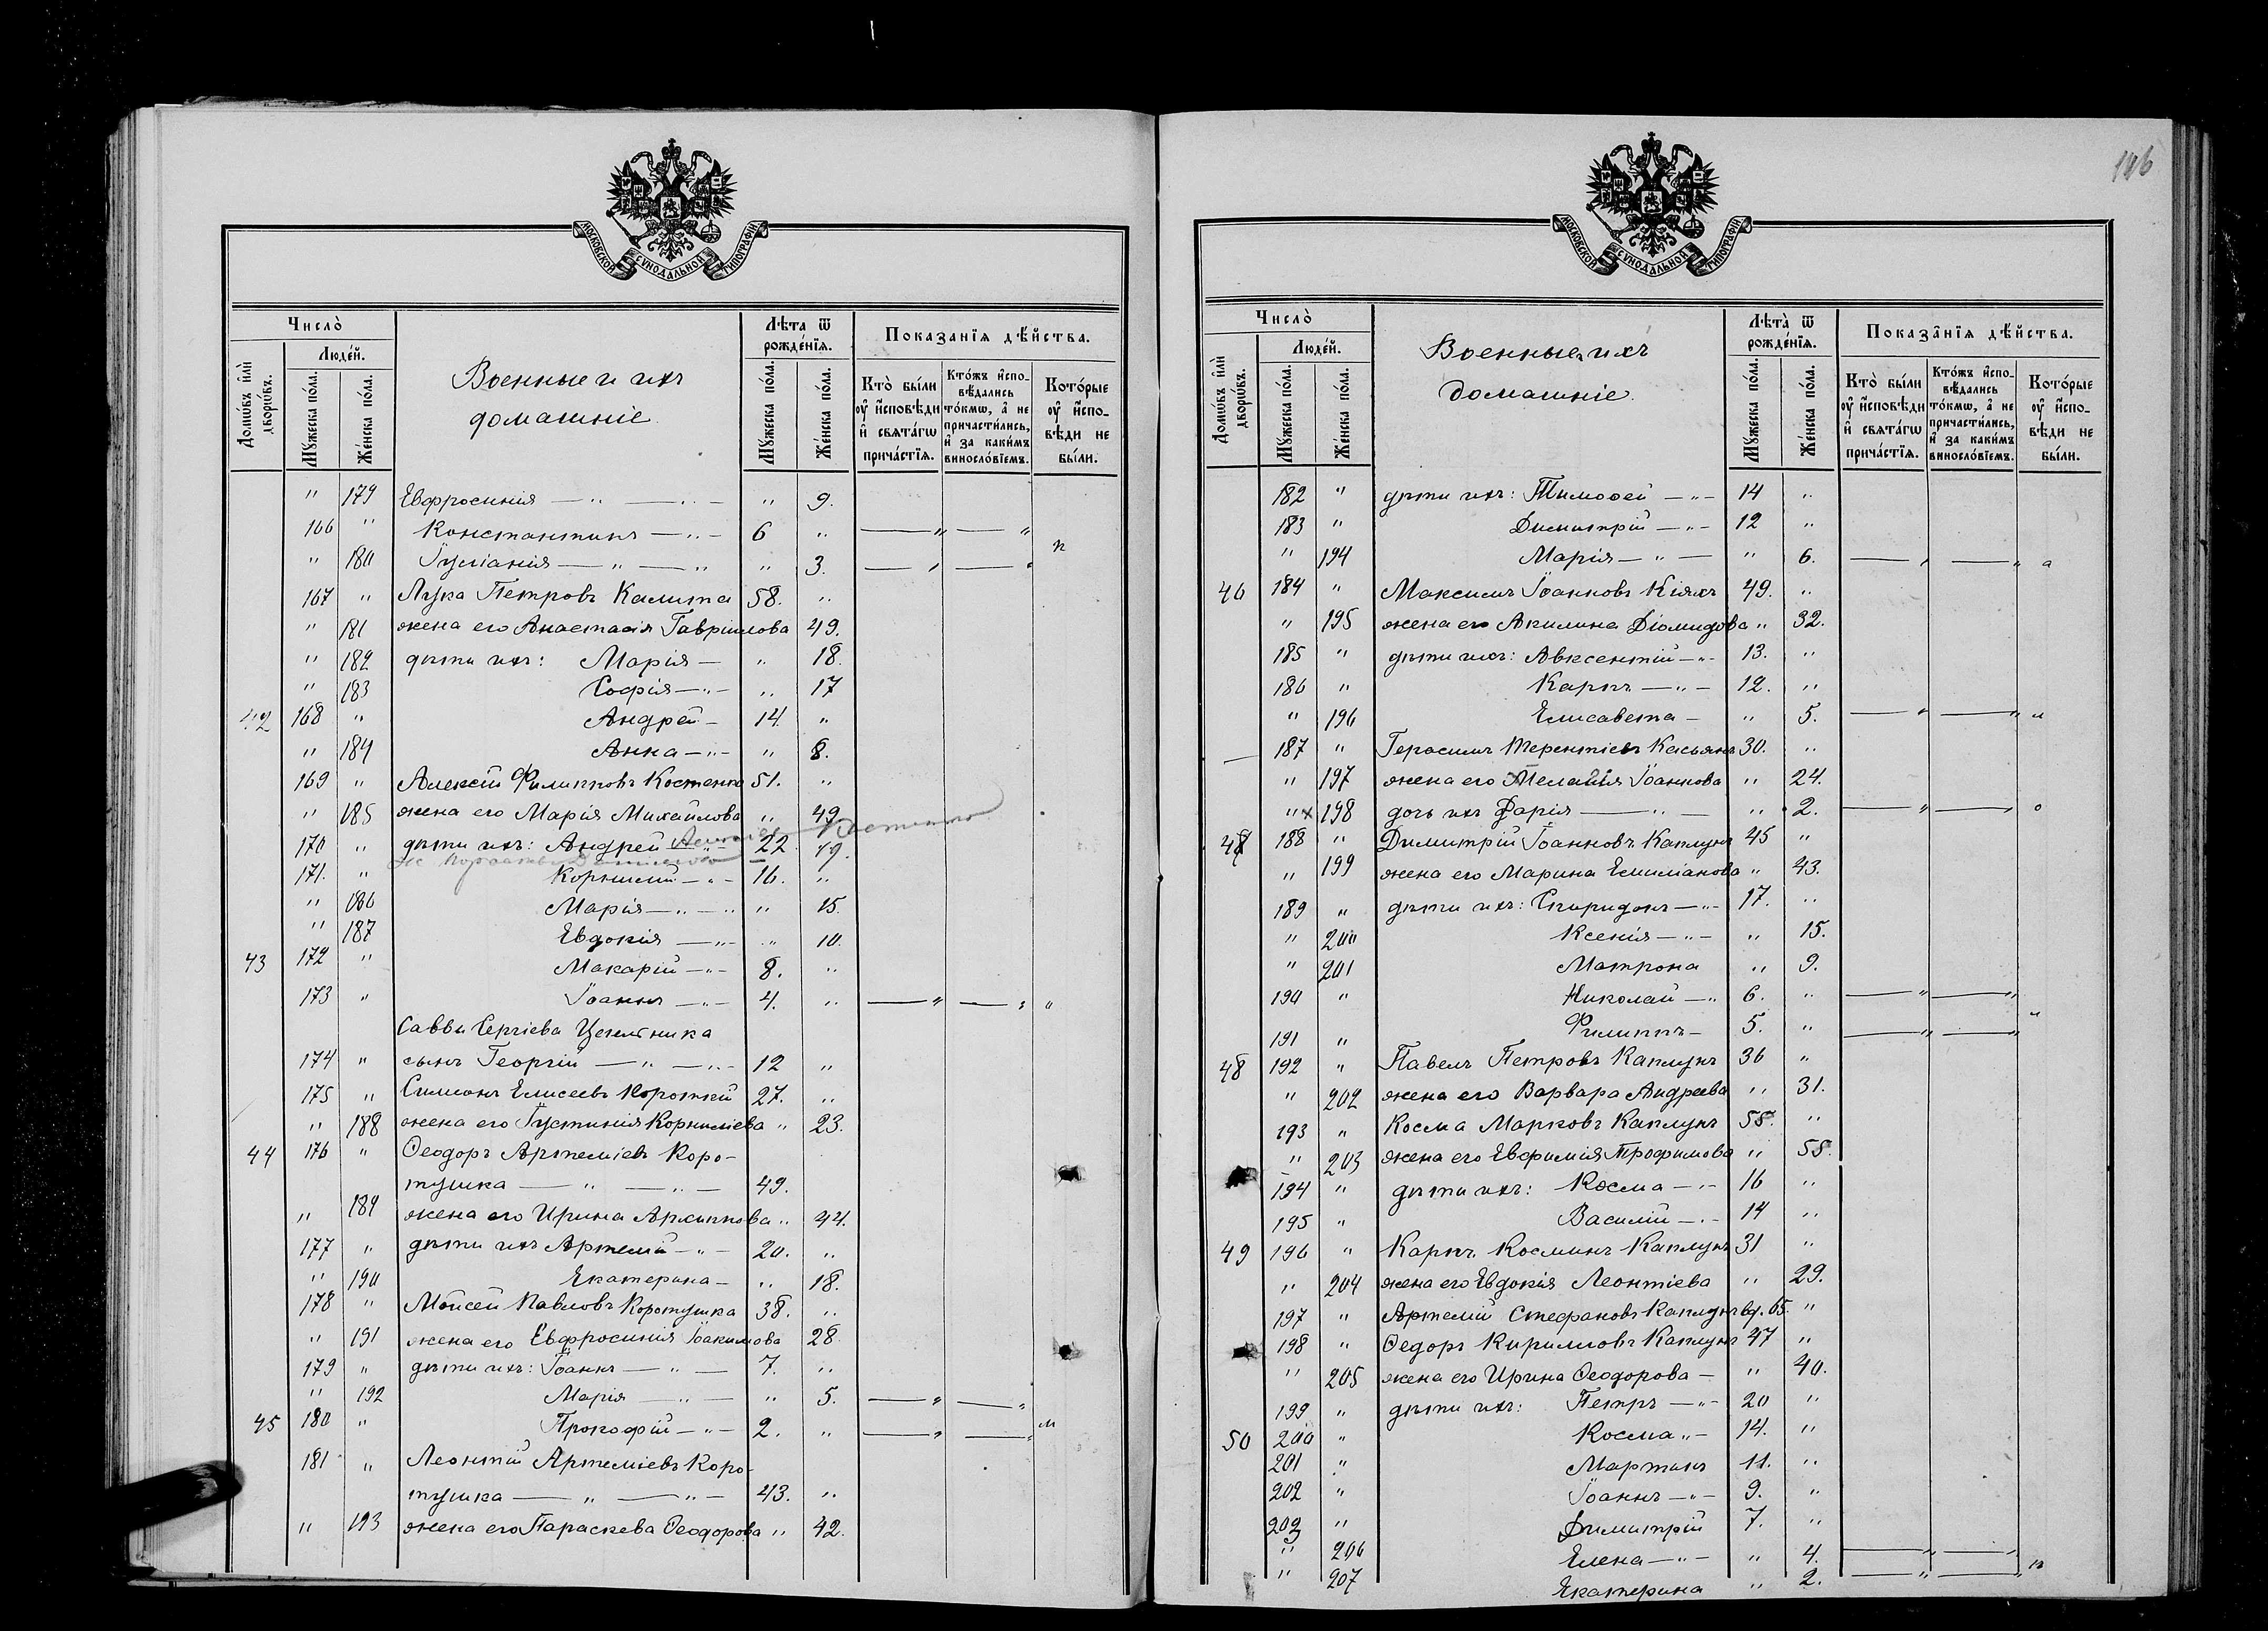 106
МОСКОВСКОЙ СѴНОДАЛЬНОЙ ТИПОГРАФІИ
Число̀
Люде́й.
Домѡ́въ и҆лѝ дворѡ́въ.
Мꙋ́жеска по́ла.
Же́нска по́ла.
Военные и ихъ
домашніе
Лѣ́та ѿ рожде́нїѧ.
Мꙋ́жеска по́ла.
Же́нска по́ла.
Показа́нїѧ дѣ́йства.
Кто̀ бы́ли оу҆ и҆сповѣди и҆ свѧта́гѡ прича́стїѧ.
Кто́жъ и҆спо-вѣ́дались то́кмѡ, а҆ не причасти́лись, и҆ за каки́мъ винослόвїемъ.
Кото́рые оу҆ и҆спо-вѣди не бы́ли.
" 179 Евфросинія — " — " — " 9.
166 " Константинъ — " — 6 " — " — "
" 180 Іуліанія — " — " " 3. — " — "
167 " Лука Петровъ Калита 58. "
" 181 жена его Анастасія Гавріилова 49.
" 182 дѣти ихъ: Марія — " 18.
" 183 Софія — " — " 17
42 168 " Андрей — 14. "
" 184 Анна — " — " 8.
169 " Алексій Филипповъ Костенко 51. "
" 185 жена его Марія Михайлова " 49
170 " дѣти ихъ: Андрей 22 19.
171. " Корнилій — " — 16. "
" 186 Марія — " — " " 15.
" 187 Евдокія — " — " 10.
43 172 " Макарій — " — 8. "
173 " Іоаннъ — " — 4. " — " — " "
Саввы Сергіева
174 " сынъ Георгій — " — " — 12 "
175 " Симеонъ Елисеевъ Короткій 27. "
" 188 жена его Іустинія Корниліева " 23.
44 176 " Ѳеодоръ Артеміевъ Коро-
тушка — " — " — 49.
" 189 жена его Ирина Архиппова " 44.
177 " дѣти ихъ Артемій — " — 20. "
" 190 Екатерина — " 18.
178 " Моисей Павловъ Коротушка 38. "
" 191 жена его Евфросинія Іоакимова 28
179 " дѣти ихъ: Іоаннъ — " — 7. "
" 192 Марія — " — " 5. — " — "
45 180 " Прокофій — " — 2. " — " — "
181 " Леонтій Артеміевъ Коро-
тушка — " — " — 43. "
" 193 жена его Параскева Ѳеодорова " 42.
МОСКОВСКОЙ СѴНОДАЛЬНОЙ ТИПОГРАФІИ
Число̀
Люде́й.
Домѡ́въ и҆лѝ дворѡ́въ.
Мꙋ́жеска по́ла.
Же́нска по́ла.
Военные и ихъ
домашніе.
Лѣта̀ ѿ рожде́нїѧ.
Мꙋ́жеска по́ла.
Же́нска по́ла.
Показа́нїѧ дѣ́йства.
Кто̀ бы́ли оу҆ и҆сповѣди и҆ свѧта́гѡ прича́стїѧ.
Кто́жъ и҆спо-вѣ́дались то́кмѡ, а҆ не причасти́лись, и҆ за каки́мъ винослόвїемъ.
Кото́рые оу҆ и҆спо-вѣди не бы́ли.
182 " дѣти ихъ: Тимоѳей — " — 14 "
183 " Димитрій — " — 12 "
" 194 Марія — " — " 6. — " — "
46 184 " Максимъ Іоанновъ Кіяхъ 49. "
" 195 жена его Акилина Діомидова " 32.
185 " дѣти ихъ: Авксентій — " — 13. "
186 " Карпъ — " — 12. "
" 196 Елисавета — " 5. — " — "
187 " Герасимъ Терентіевъ Касьянъ 30. "
" 197 жена его Пелагія Іоаннова " 24.
" 198 дочь ихъ Дарія — " — " 2. — " — "
47 188 " Димитрій Іоанновъ Каплунъ 45 "
" 199 жена его Марина Емиліанова " 43.
189 " дѣти ихъ: Спиридонъ — " — 17. "
" 200 Ксенія — " — " 15.
" 201 Матрона " 9.
190 " Николай — " 6. " — " — "
191 " Филиппъ — 5. " — " — "
48 192 " Павелъ Петровъ Каплунъ 36 "
" 202 жена его Варвара Андреева " 31.
193 " Косма Марковъ Каплунъ 58. "
" 203 жена его Евфимія Трофимова " 58.
194 " дѣти ихъ: Косма — " — 16 "
195 " Василій — " — 14 "
49 196 " Карпъ Косминъ Каплунъ 31 "
" 204 жена его Евдокія Леонтіева " 29.
197 " Артемій Стефановъ Каплунъ вд. 65. "
198 " Ѳедоръ Кирилловъ Каплунъ 47 "
" 205 жена его Ирина Ѳеодорова — " 40.
199 " дѣти ихъ: Петръ — " — 20 "
50 200 " Косма " — 14. "
201 " Мартинъ 11. "
202 " Іоаннъ — " — 9. "
203 " Димитрій 7. "
" 206 Елена — " — " 4. — " — "
" 207 Екатерина " 2. — " — "